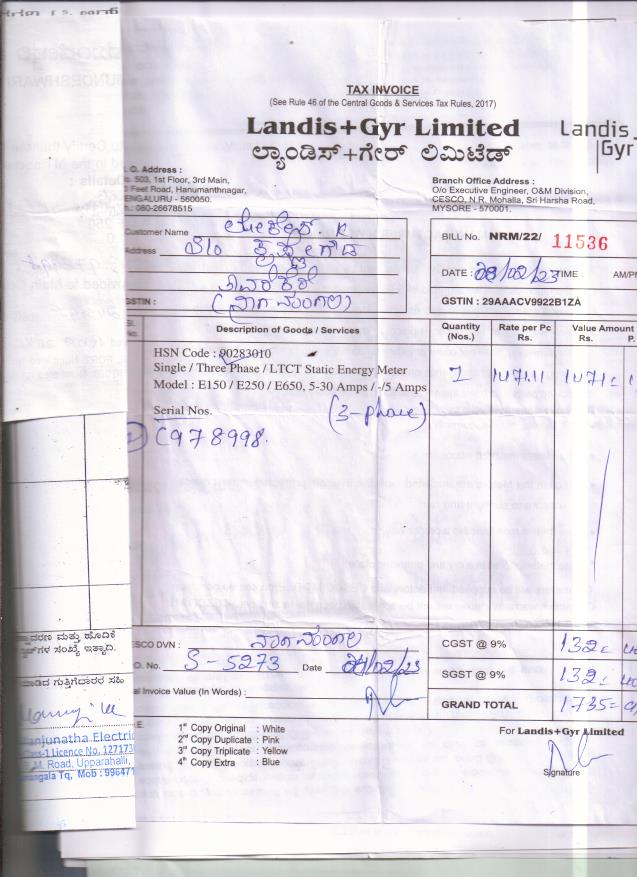 TAX INVOICE
(See Rule 46 of the Central Goods & Services Tax Rules, 2017)
Landis+Gyr Limited
Landis
Gyr
ಲ್ಯಾಂಡಿಸ್+ಗೇರ್ ಲಿಮಿಟೆಡ್
O. Address :
503, 1st Floor, 3rd Main,
Feet Road, Hanumanthnagar,
ENGALURU - 560050.
080-26678515
Branch Office Address :
O/o Executive Engineer, O&M Division,
CESCO, N.R. Mohalla, Sri Harsha Road,
MYSORE - 570001.
Customer Name ಲೋಕೇಶ್. K
Address S/o
GSTIN : (ನಾಗಮಂಗಲ)
BILL No. NRM/22/ 11536
DATE : 08/02/23 TIME : AM/P
GSTIN : 29AAACV9922B1ZA
Description of Goods / Services
Quantity (Nos.)
Rate per Pc Rs.
Value Amount Rs. P.
HSN Code : 90283010
Single / Three Phase / LTCT Static Energy Meter
Model : E150 / E250 / E650, 5-30 Amps / -/5 Amps
1 1471.11 1471
Serial Nos. (3-phase)
C978998.
ESCO DVN : ನಾಗಮಂಗಲ
O. No. S-5273 Date 08/02/23
Invoice Value (In Words) :
CGST @ 9% 132
SGST @ 9% 132
GRAND TOTAL 1735
1st Copy Original : White
2nd Copy Duplicate : Pink
3rd Copy Triplicate : Yellow
4th Copy Extra : Blue
For Landis+Gyr Limited
Signature
ಮತ್ತು ಹೊದಿಕೆ
ಸಂಖ್ಯೆ ಇತ್ಯಾದಿ.
ಮಾಡಿದ ಗುತ್ತಿಗೆದಾರರ ಸಹಿ
anjunatha Electric
Class-1 Licence No. 127173
M. Road, Upparahalli,
mangala Tq, Mob : 996471